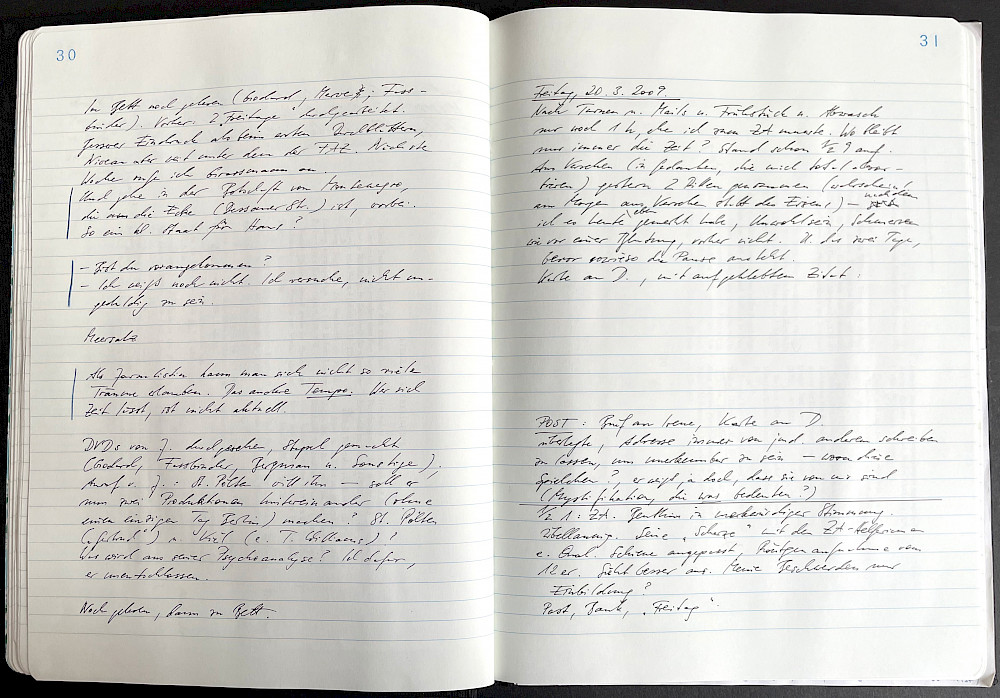 30
Im Bett noch gelesen (Godard, Merve; Fass-
binder). Vorher 2 "Freitage" durchgearbeitet.
Besserer Eindruck als beim ersten Durchblättern,
Niveau aber weit unter dem der FAZ. Nächste
Woche rufe ich Grassmann an.
Und gehe in der Botschaft von Montenegro,
die um die Ecke (Dessauer Str.) ist, vorbei.
So ein kl. Staat für Hans?
– Bist du vorangekommen?
– Ich weiß noch nicht. Ich versuche, nicht un-
geduldig zu sein.
Meersalz
Als Journalistin kann man sich nicht so viele
Träume erlauben. Das andere Tempo. Wer sich
Zeit lässt, ist nicht aktuell.
DVDs von J. durchgesehen, Stapel gemacht
(Godard, Fassbinder, Bergman u. Sonstige).
Anruf v. J.: St. Pölten will ihn – soll er
nun zwei Produktionen hintereinander (ohne
einen einzigen Tag Berlin) machen? St. Pölten
u. Kiel (e. T. Williams)?
Was wird aus seiner Psychoanalyse? Ich dafür,
er unentschlossen.
Noch gelesen, dann zu Bett.
31
Freitag, 20.3.2009.
Nach Turnen u. Mails u. Frühstück u. Abwasch
nur noch 1 h, ehe ich zum ZA musste. Wo bleibt
nur immer die Zeit? Stand schon 1/2 9 auf.
Aus Versehen (in Gedanken, die mich total absor-
bieren) gestern 2 Pillen genommen (wahrscheinl.
am Morgen aus Versehen statt des Eisens) – nachdem
ich es heute eben gemerkt habe, Unwohlsein, Schmerzen
wie vor einer Blutung, vorher nicht. U. das zwei Tage,
bevor sowieso die Pause ansteht.
Karte an D., mit aufgeklebtem Zitat.
POST: Brief an Irene, Karte an D.
überlegte, Adresse immer von jmd. anderem schreiben
zu lassen, um unerkennbar zu sein – wozu die
Spielchen?, er weiß ja doch, dass sie von mir sind
(Mystifikation, die was bedeuten?)
1/2 1: ZA. in merkwürdiger Stimmung.
Übellaunig. Seine "Scherze" mit den ZA-Helferinnen
e. Qual. Schiene angepasst, Röntgenaufnahme vom
12er. Sieht besser aus. Meine Beschwerden nur
Einbildung?
Post, Bank, "Freitag".